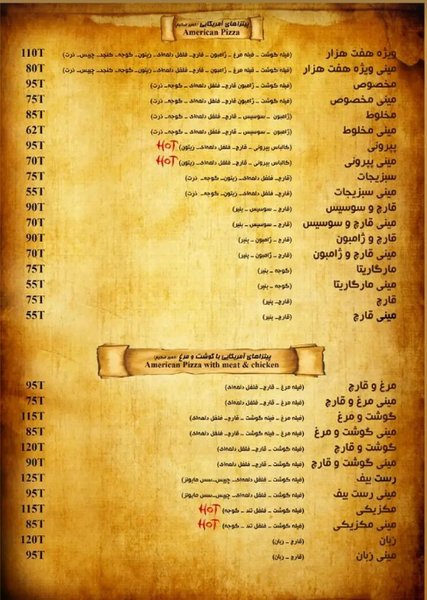 پیتزاهای آمریکایی (خمیر ضخیم)
American Pizza
ویژه هفت هزار (فیله گوشت ـ فیله مرغ ـ ژامبون ـ قارچ ـ فلفل دلمه‌ای ـ زیتون ـ گوجه ـ کنجد ـ چیپس ـ ذرت) 110T
مینی ویژه هفت هزار (فیله گوشت ـ فیله مرغ ـ ژامبون ـ قارچ ـ فلفل دلمه‌ای ـ زیتون ـ گوجه ـ کنجد ـ چیپس ـ ذرت) 80T
مخصوص (فیله گوشت ـ ژامبون ـ قارچ ـ فلفل دلمه‌ای ـ گوجه ـ ذرت) 95T
مینی مخصوص (فیله گوشت ـ ژامبون ـ قارچ ـ فلفل دلمه‌ای ـ گوجه ـ ذرت) 75T
مخلوط (ژامبون ـ سوسیس ـ قارچ ـ فلفل دلمه‌ای ـ گوجه ـ ذرت) 85T
مینی مخلوط (ژامبون ـ سوسیس ـ قارچ ـ فلفل دلمه‌ای ـ گوجه ـ ذرت) 62T
پپرونی (کالباس پپرونی ـ قارچ ـ فلفل دلمه‌ای ـ زیتون) HOT 95T
مینی پپرونی (کالباس پپرونی ـ قارچ ـ فلفل دلمه‌ای ـ زیتون) HOT 70T
سبزیجات (قارچ ـ فلفل دلمه‌ای ـ زیتون ـ گوجه ـ ذرت) 75T
مینی سبزیجات (قارچ ـ فلفل دلمه‌ای ـ زیتون ـ گوجه ـ ذرت) 55T
قارچ و سوسیس (قارچ ـ سوسیس ـ پنیر) 90T
مینی قارچ و سوسیس (قارچ ـ سوسیس ـ پنیر) 70T
قارچ و ژامبون (قارچ ـ ژامبون ـ پنیر) 90T
مینی قارچ و ژامبون (قارچ ـ ژامبون ـ پنیر) 70T
مارگاریتا (گوجه ـ پنیر) 75T
مینی مارگاریتا (گوجه ـ پنیر) 55T
قارچ (قارچ ـ پنیر) 75T
مینی قارچ (قارچ ـ پنیر) 55T
پیتزاهای آمریکایی با گوشت و مرغ (خمیر ضخیم)
American Pizza with meat & chicken
مرغ و قارچ (فیله مرغ ـ قارچ ـ فلفل دلمه‌ای) 95T
مینی مرغ و قارچ (فیله مرغ ـ قارچ ـ فلفل دلمه‌ای) 75T
گوشت و مرغ (فیله مرغ ـ فیله گوشت ـ قارچ ـ فلفل دلمه‌ای) 115T
مینی گوشت و مرغ (فیله مرغ ـ فیله گوشت ـ قارچ ـ فلفل دلمه‌ای) 85T
گوشت و قارچ (فیله گوشت ـ قارچ ـ فلفل دلمه‌ای) 120T
مینی گوشت و قارچ (فیله گوشت ـ قارچ ـ فلفل دلمه‌ای) 90T
رست بیف (فیله گوشت ـ فلفل دلمه‌ای ـ چیپس ـ سس مایونز) 125T
مینی رست بیف (فیله گوشت ـ فلفل دلمه‌ای ـ چیپس ـ سس مایونز) 95T
مکزیکی (فیله گوشت ـ فلفل تند ـ گوجه) HOT 115T
مینی مکزیکی (فیله گوشت ـ فلفل تند ـ گوجه) HOT 85T
زبان (قارچ ـ زبان) 120T
مینی زبان (قارچ ـ زبان) 95T